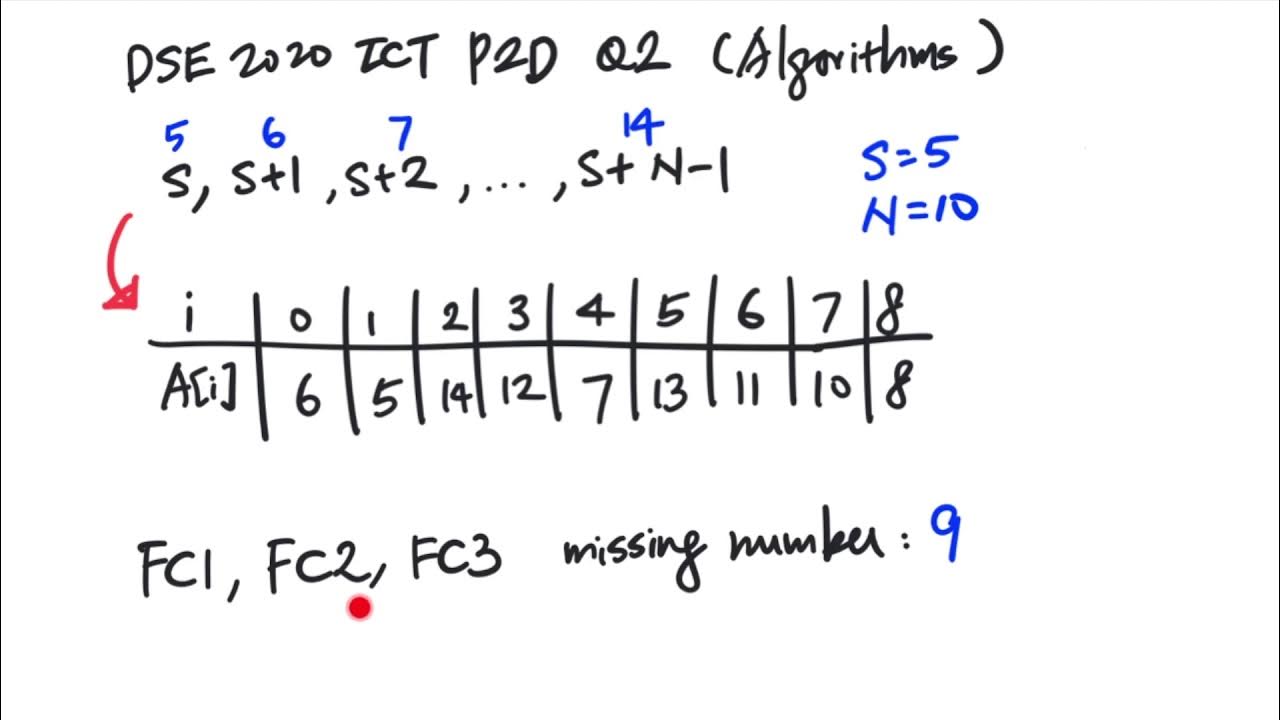 DSE 2020 ICT P2D Q2 (Algorithms)
5 6 7 14
S, S+1, S+2, ..., S+N-1
S=5
N=10
i 0 1 2 3 4 5 6 7 8
A[i] 6 5 14 12 7 13 11 10 8
FC1, FC2, FC3 missing number: 9